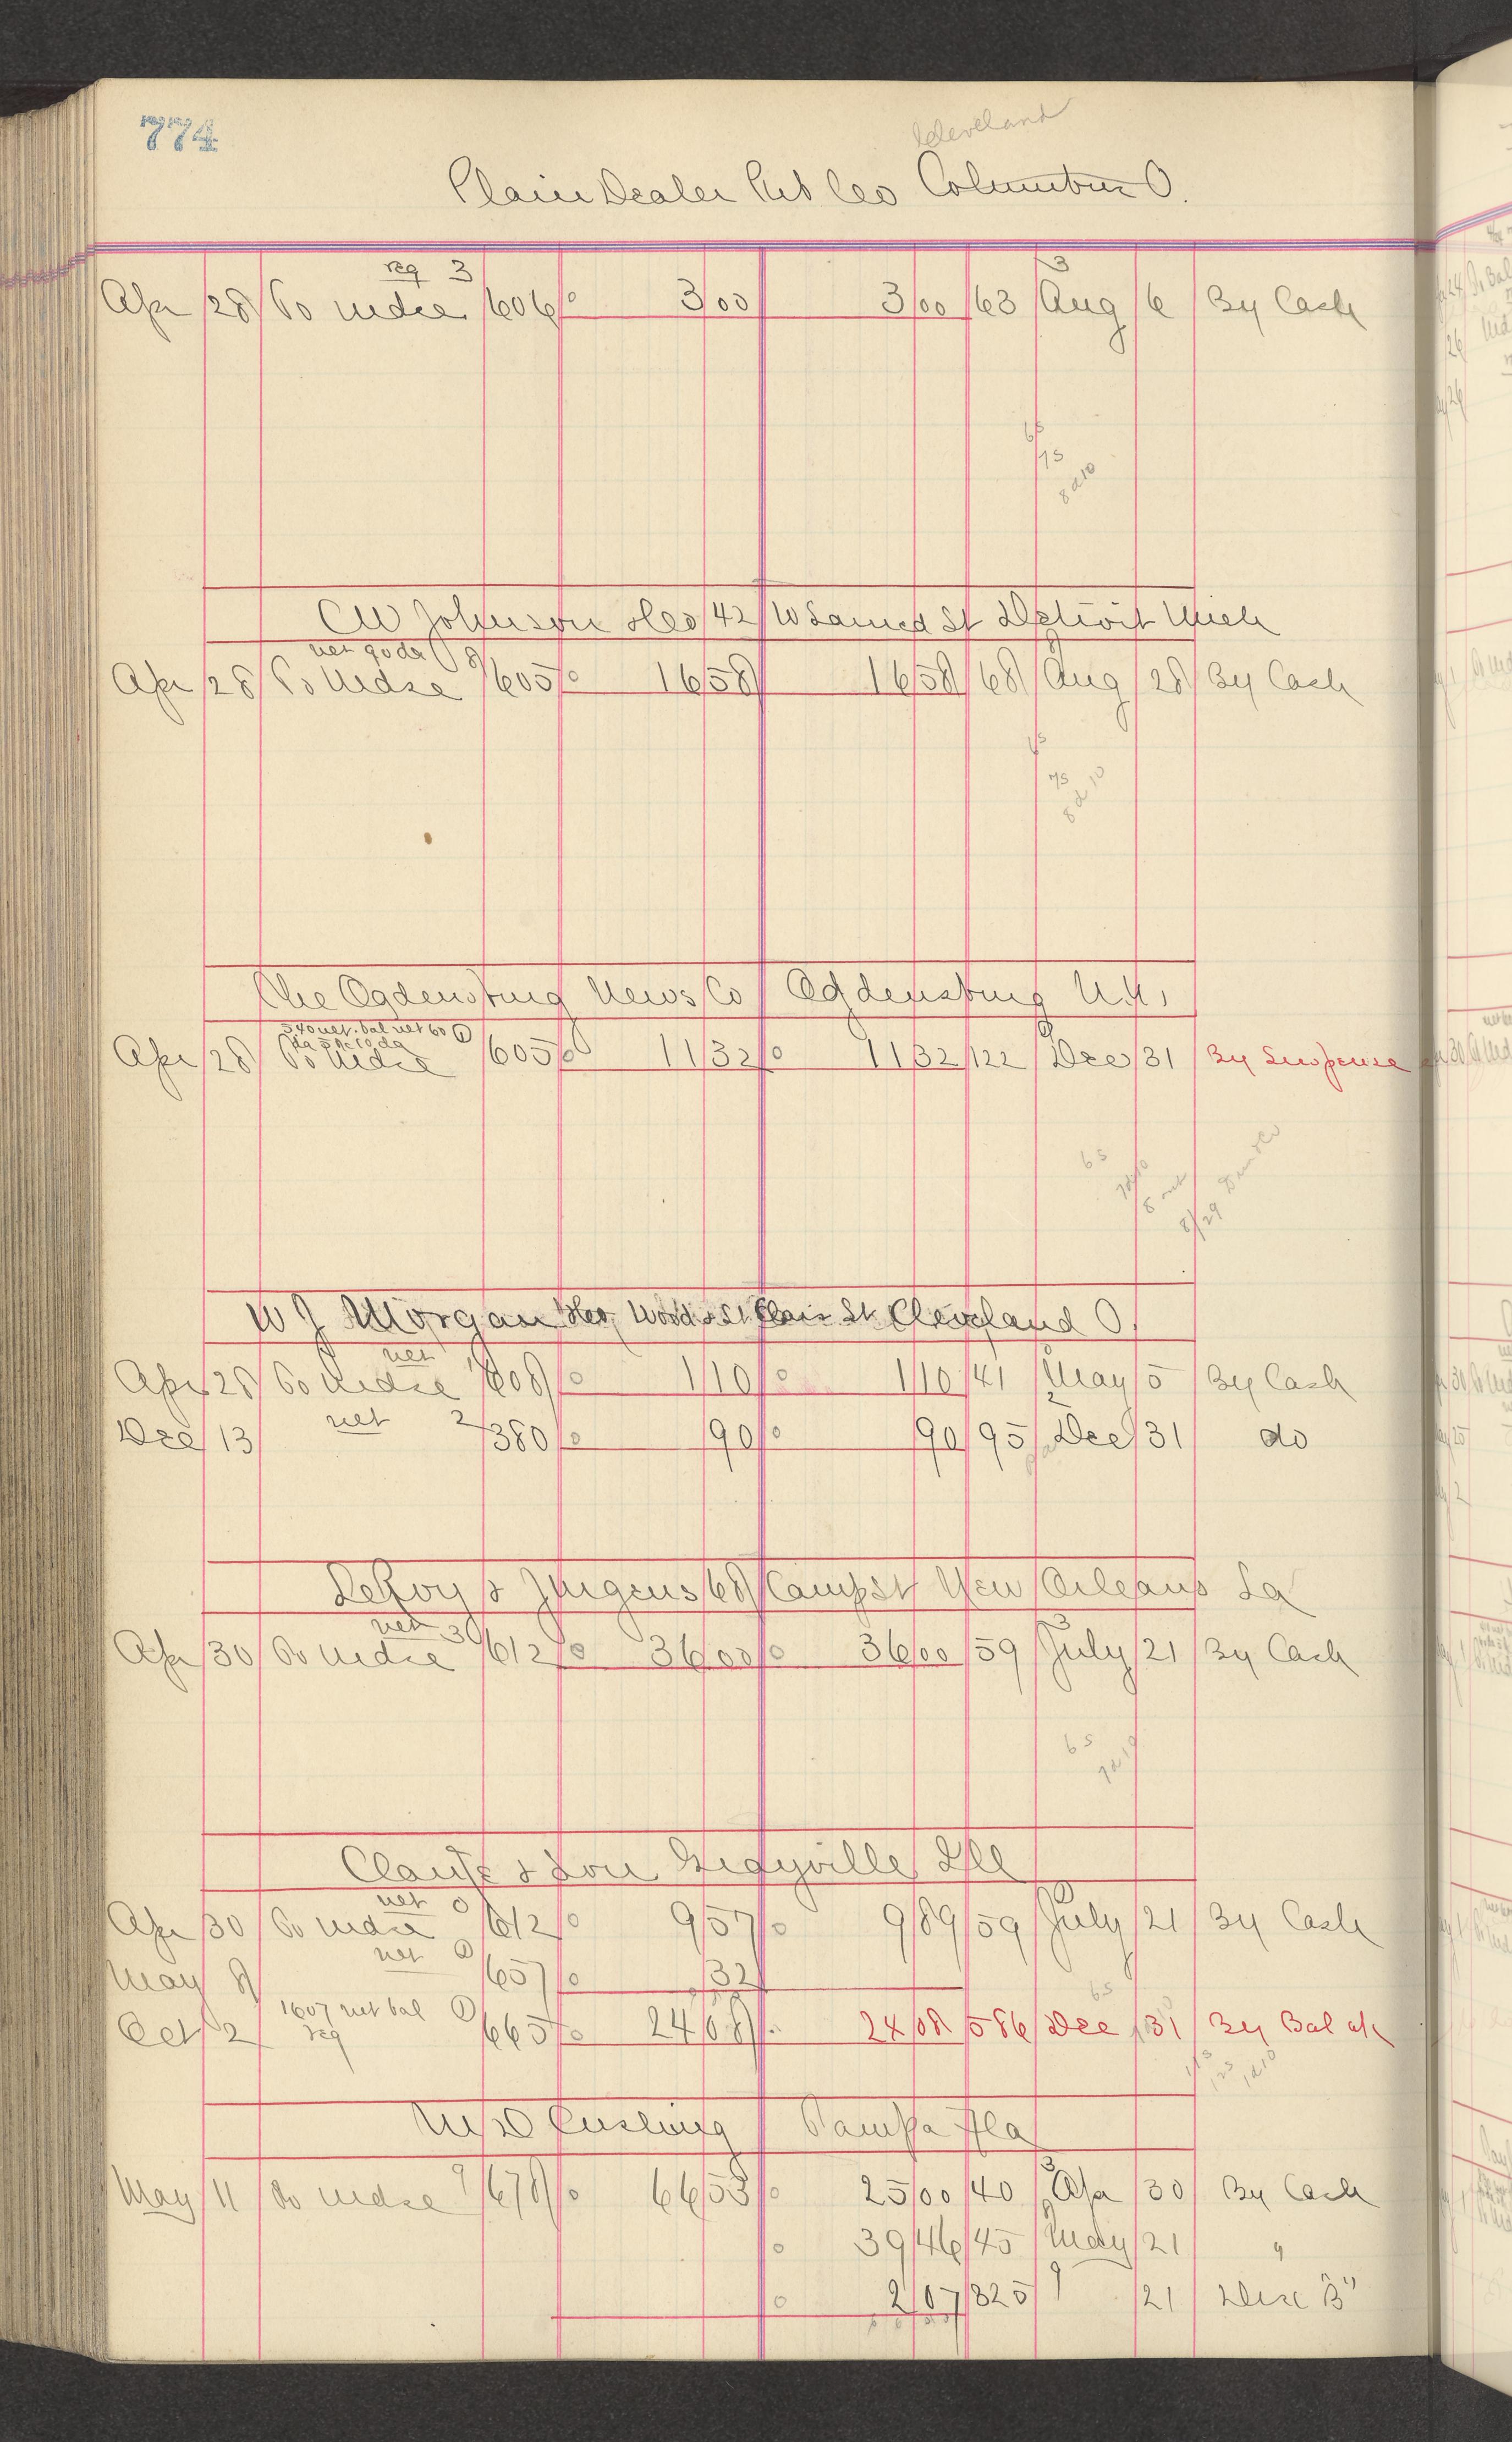 774
Cleveland
Plain Dealer Pub Co Columbus O.
reg 3
3
Apr 28 To Mdse 606 3 00 3 00 63 Aug 6 By Cash
65
75
8 d 10
C W Johnson & Co 42 W Larned St Detroit Mich
net 90 da
Apr 28 To Mdse 605 16 58 16 58 68 Aug 28 By Cash
75
8 d 10
The Ogdensburg News Co Ogdensburg N.Y.
540 net. bal net 60
da 5% 10 da
Apr 28 To Mdse 605 11 32 11 32 122 Dec 31 By Suspense
65
8/29
W J Morgan & Co, Wood & St Clair St Cleveland O.
net
Apr 28 To Mdse 608 1 10 1 10 41 May 5 By Cash
Dec 13 net 2 380 90 90 95 Dec 31 do
LeRoy & Jurgens 68 Camp St New Orleans La
net 30
3
Apr 30 To Mdse 612 36 00 36 00 59 July 21 By Cash
65
7 d 19
& Son Ill
net 0
Apr 30 To Mdse 612 9 57 9 89 59 July 21 By Cash
net
May 8 657 32
65
1607 net bal
Oct 2 reg 665 24 08 24 08 586 Dec 31 By Bal a/c
Cushing Tampa Fla
May 11 To Mdse 9 678 66 53 25 00 40 Apr 30 By Cash
39 46 45 May 21 "
2 07 325 9 21 Disc "B"